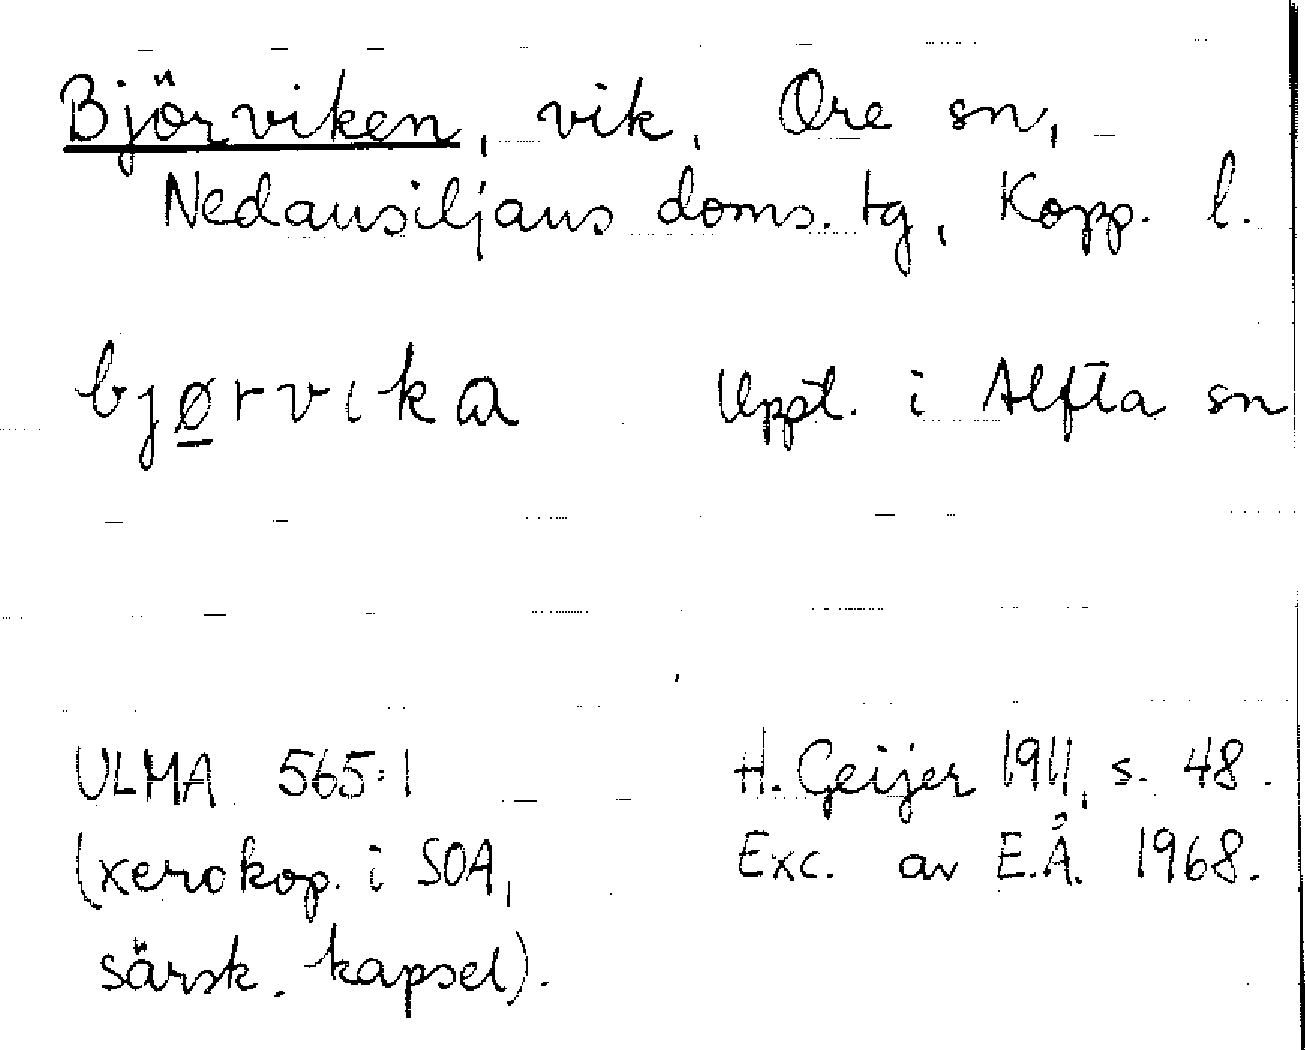 Björviken, vik, Ore sn,
Nedansiljans doms. tg, Kopp. l.
bjørvika Uppt. i Alfta sn
ULMA 565:1 H. Geijer 1911, s. 48.
(xerokop. i SOA, Exc. av E.Å. 1968.
särsk. kapsel).